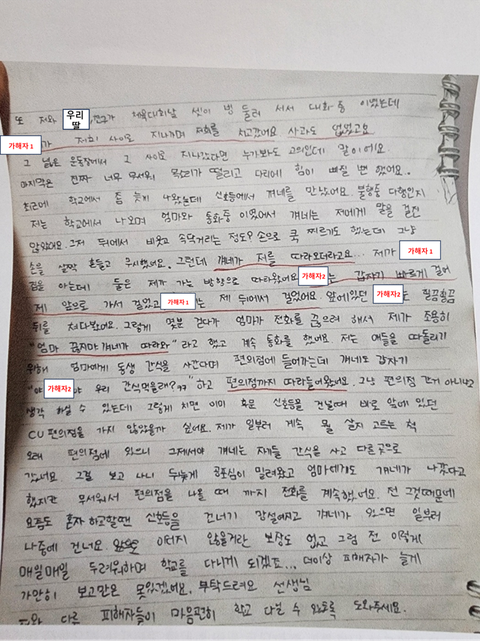 또 저와 우리딸, 친구가 체육대회날 셋이 빙 둘러 서서 대화 중 이었는데
가해자 1 가 저희 사이로 지나가며 저희를 치고갔어요 사과도 없었고요
그 넓은 운동장에서 그 사이로 지나갔다면 누가봐도 고의인데 말이에요
마지막은 진짜 너무 무서워 목소리가 떨리고 다리에 힘이 빠질 뻔 했어요.
최근에 학교에서 좀 늦게 나왔는데 신호등에서 걔네를 만났어요 불행중 다행인지
저는 학교에서 나오며 엄마와 통화중 이였어서 걔네는 저에게 말을 걸진
않았어요. 그저 뒤에서 비웃고 속닥거리는 정도? 손으로 쿡 찌르기도 했는데 그냥
손을 살짝 흔들고 무시했어요. 그런데 걔네가 저를 따라오더라고요... 제가 가해자 1
집을 아는데 둘은 제가 가는 방향으로 따라왔어요 가해자2 는 갑자기 빠르게 걸어
제 앞으로 가서 걸었고 가해자 1 는 제 뒤에서 걸었어요 앞에있던 가해자2 도 힐끔힐끔
뒤를 쳐다봤어요. 그렇게 몇분 걷다가 엄마가 전화를 끊으려 해서 제가 조용히
"엄마 끊지마 걔네가 따라와" 라고 했고 계속 통화를 했어요 저는 얘들을 따돌리기
위해 엄마에게 동생 간식을 사간다며 편의점에 들어가는데 걔네도 갑자기
"야 가해자2 야 우리 간식먹을래?ㅋㅋ" 하고 편의점까지 따라들어왔어요. 그냥 편의점 간거 아니냐고
생각 하실 수 있는데 그렇게 치면 이미 후문 신호등을 건널때 바로 앞에 있던
CU 편의점을 가지 않았을까 싶어요. 제가 일부러 계속 뭘 살지 고르는 척
오래 편의점에 있으니 그제서야 걔네는 자기들 간식을 사고 다른곳으로
갔어요 그걸 보고 나니 두렵게 공포심이 밀려왔고 엄마에게도 걔네가 나갔다고
했지만 무서워서 편의점을 나올 때 까지 전화를 계속했어요. 전 그것때문에
요즘도 혼자 하교할땐 신호등을 건너기 망설여지고 걔네가 있으면 일부러
나중에 건너요 앞으로 이러지 않을거란 보장도 없고 그럼 전 이렇게
매일매일 두려워하며 학교를 다니게 되겠죠... 더이상 피해자가 늘게
가만히 보고만은 못있겠어요. 부탁드려요 선생님
저와 다른 피해자들이 마음편히 학교 다닐 수 있도록 도와주세요.